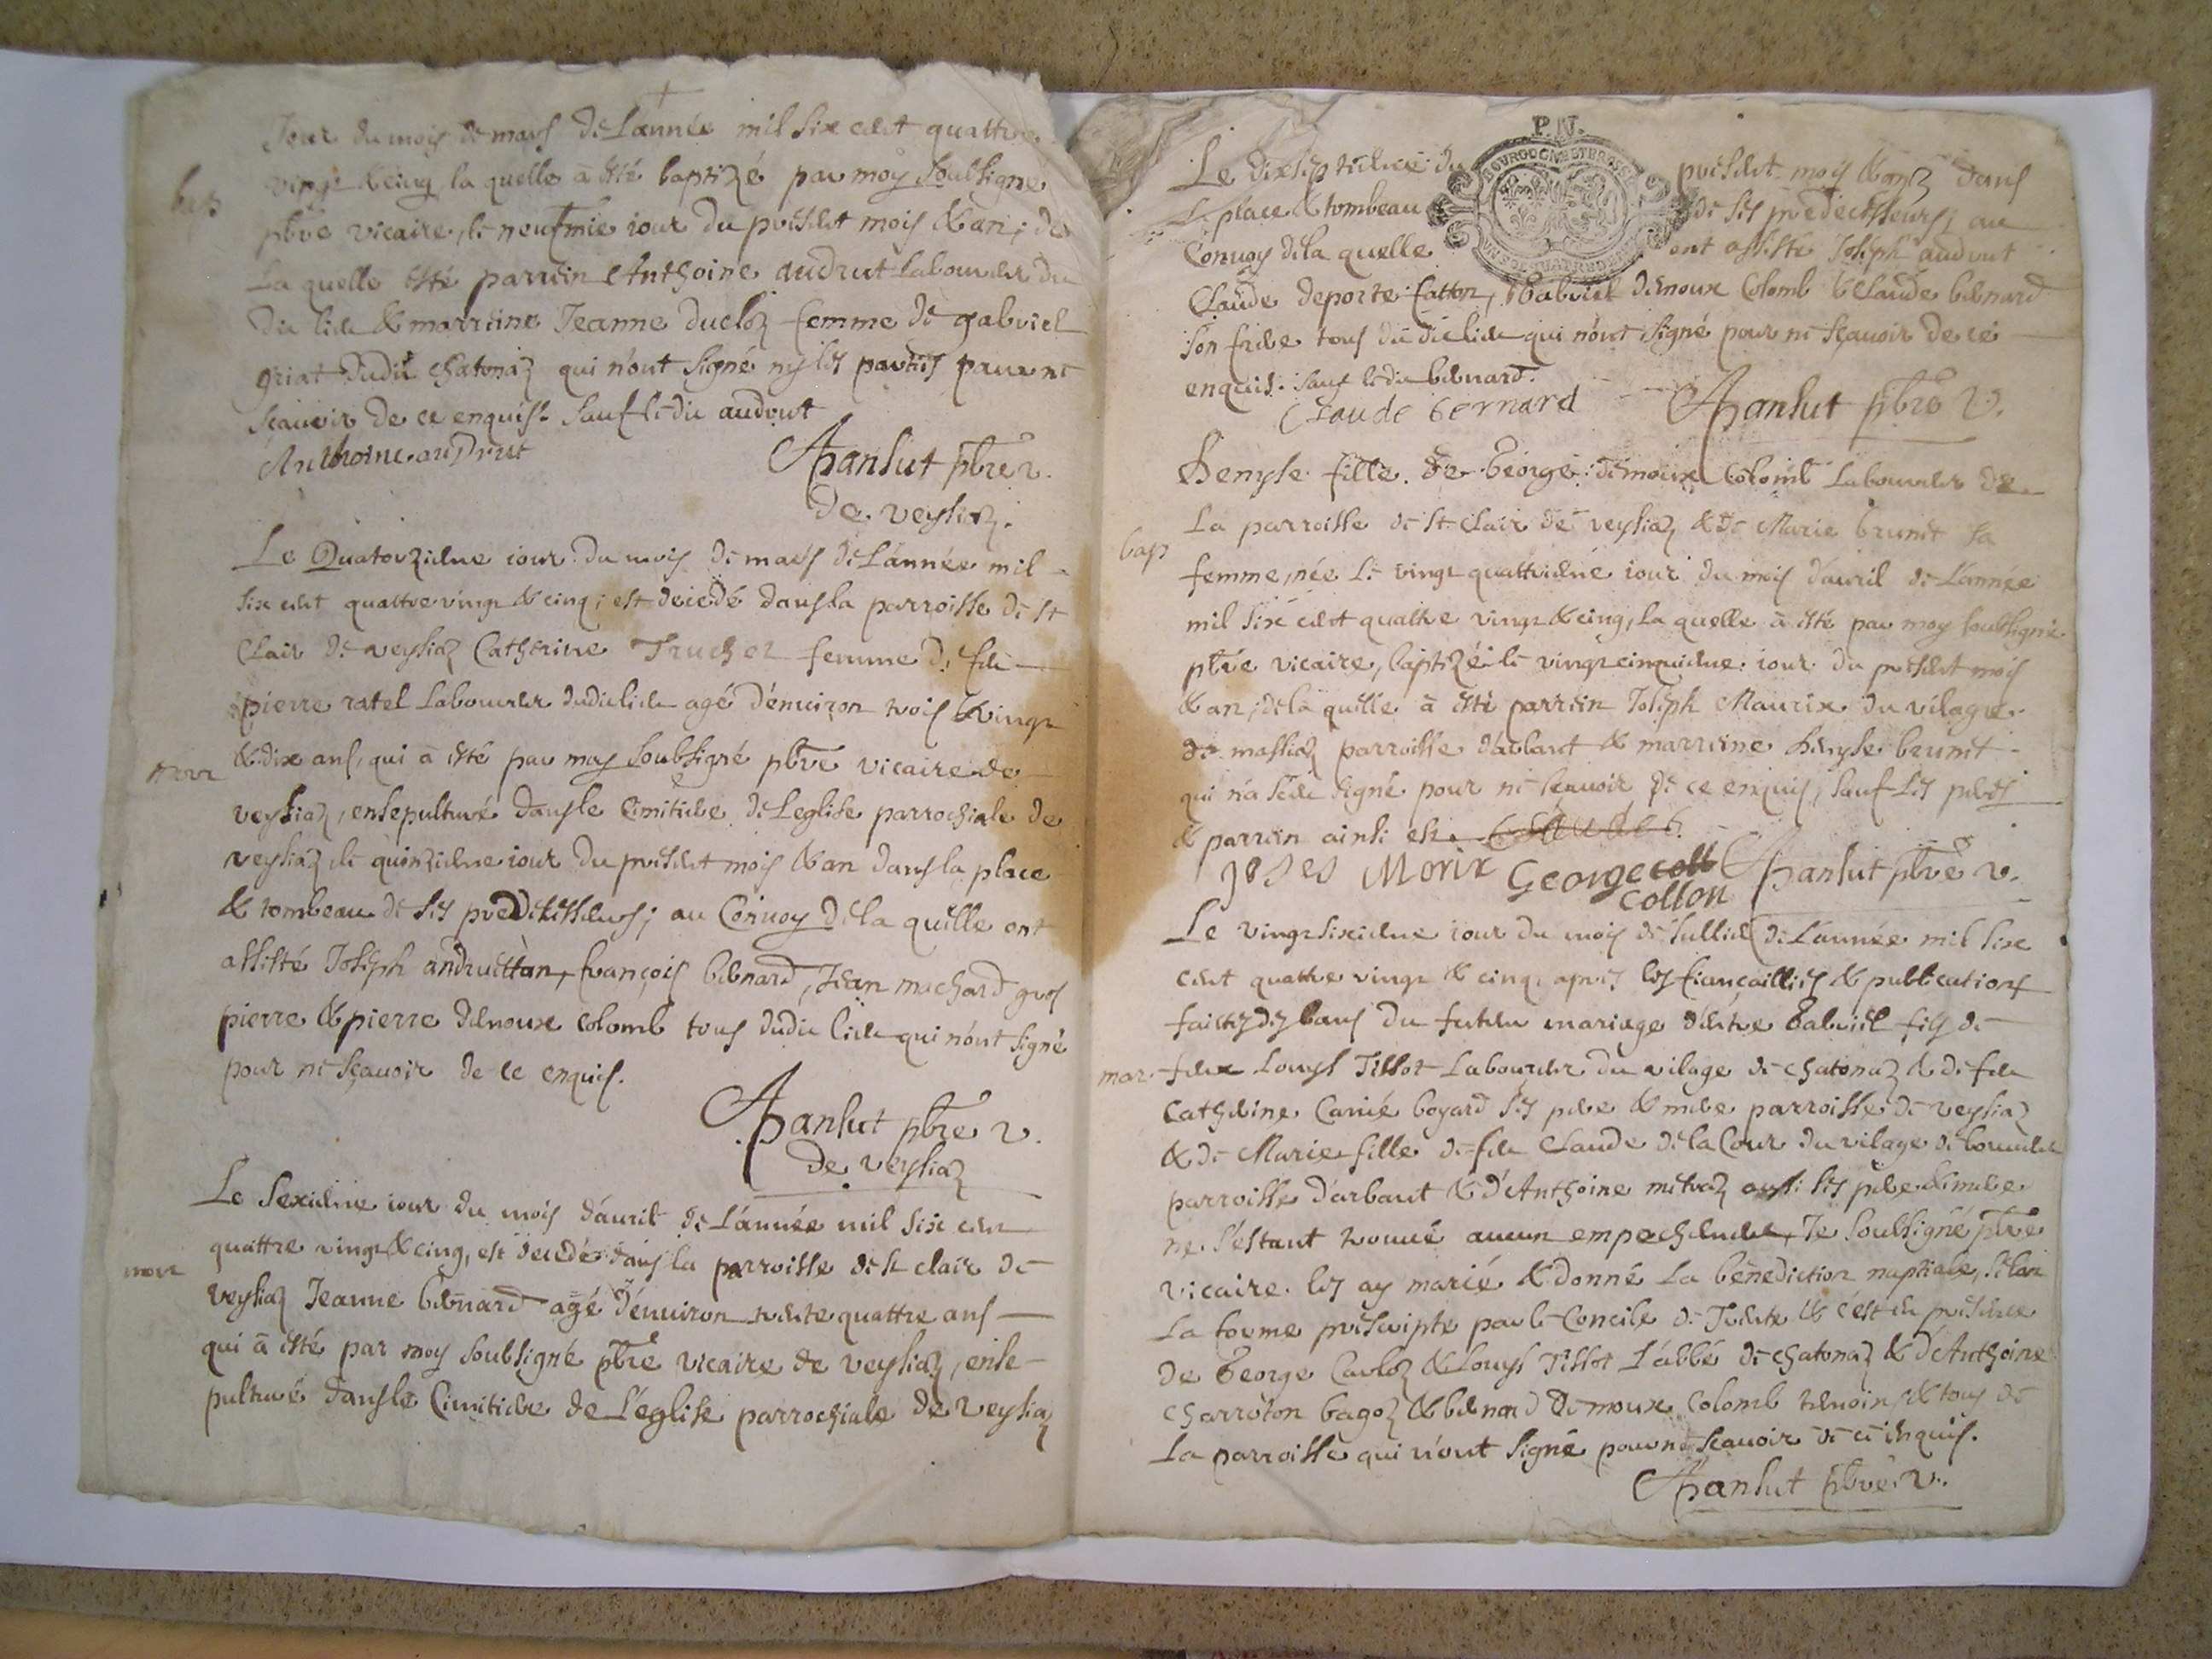 Jour du mois de mars de L'année mil six cent quattre
bap
vingt & cinq la quelle a esté baptizé par moy soubsigné
pbre vicaire, le neufmie iour du present mois & an; de
la quelle esté parrein Anthoine audrut Laboureur du
dit lieu & marreine Jeanne ducloz femme de gabriel
griat dudit chatonaz qui n'ont signé ny les parties pour ne
scauoir de ce enquis. sauf le dit audrut
Anthoine audrut
Panlut pbre v.
de veysiaz.
Le Quatorzieme iour du mois de mars de L'année mil
six cent quattre vingt & cinq; est decedé dans la parroisse de st
Clair de veysiaz Catherine Truchet femme de feu
pierre ratel Laboureur dudit lieu agé d'enuiron trois vingt
mort
& dix ans, qui a esté par moy soubsigné pbre vicaire de
veysiaz, ensepulturé dans le Cimitiere de Leglise parrochiale de
veysiaz le quinzieme iour du present mois & an dans la place
& tombeau de ses predecesseurs; au Conuoy de la quelle ont
assisté Joseph andruettan, françois bernard, Jean machard gros
pierre & pierre demoux Colomb tous dudit lieu qui n'ont signé
pour ne scauoir de ce enquis.
Panlut pbre v.
de veysiaz
Le sexieme iour du mois d'auril de L'année mil six cent
quattre vingt & cinq, est decedé dans la parroisse de st clair de
mort
veysiaz Jeanne bernard agé d'enuiron trente quattre ans
qui a esté par moy soubsigné pbre vicaire de veysiaz, ense-
pulturé dans le Cimitiere de L'eglise parrochiale de veysiaz
P.N.
Le dixseptieme du present mois & an dans
la place & tombeau de ses predecesseurs; au
Conuoy de la quelle ont assisté Joseph audrut
Claude deporte catton, Gabriel demoux Colomb & Claude bernard
son frere tous du dit lieu qui n'ont signé pour ne scauoir de ce
enquis. sauf le dit bernard.
Claude bernard
Panlut pbre v.
Denyse fille de George demoux Colomb Laboureur de
La parroisse de st clair de veysiaz & de Marie brunet sa
bap
femme, née le vingt quattrieme iour du mois d'auril de L'année
mil six cent quattre vingt & cinq, la quelle a esté par moy soubsigné
pbre vicaire, baptizé le vingt cinquieme iour du present mois
& an; de la quelle a esté parrein Joseph Maurix du vilage
de massiaz parroisse d'arbant & marreine denyse brunet
qui n'a signé pour ne scauoir de ce enquis, sauf les peres
& parrein ainsi est.
Joses Morix George coll
collon
Panlut pbre v.
Le vingt sixieme iour du mois de Juillet de L'année mil six
cent quattre vingt & cinq, apres les fiançailles & publications
faictes des bans du futeur mariage d'entre Gabriel fils de
mar.
feux Louys Tissot Laboureur du vilage de chatonaz & de feu
Catherine Carrié bogard ses pere & mere parroisse de veysiaz
& de Marie fille de feu Claude de la Cour du vilage de
parroisse d'arbant & d'Anthoine mitraz aussi ses pere & mere
ne s'estant trouué aucun empechement, Je soubsigné pbre
vicaire les ay marié & donné la benediction nuptiale, selon
la forme prescripte par le Concile de Trente & c'est en presence
de George Carloz & Louys Tissot L'abbé de chatonaz & d'Anthoine
charroton bagoz & bernard demoux Colomb temoins & tous de
La parroisse qui n'ont signé pour ne scauoir de ce enquis.
Panlut pbre v.